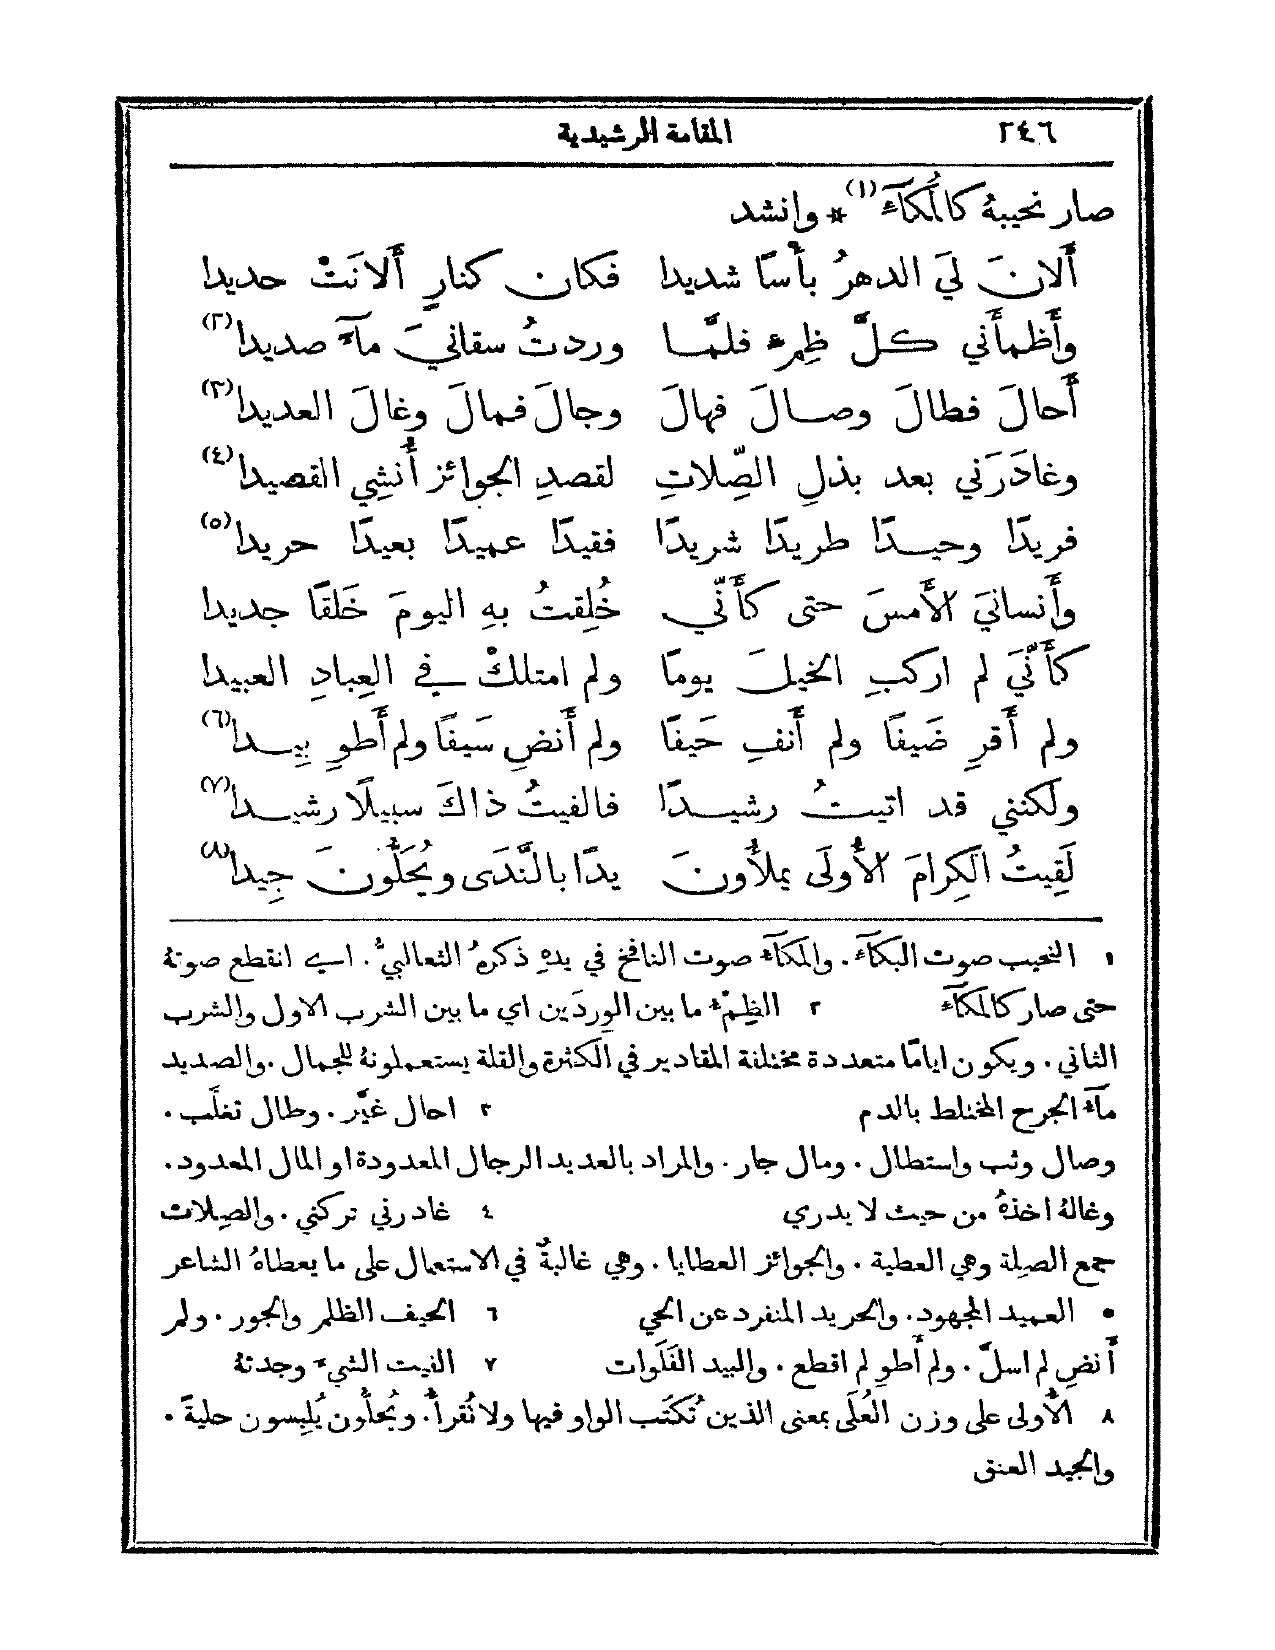 ٢٤٦ المقامة الرشيدية
صار نحيبهُ كالمُكَآءِ(١) * وانشد
أَلانَ ليَ الدهرُ بأْسًا شديدا فكان كنارٍ أَلانَتْ حديدا
وأَظمأَني كلَّ ظِمءٍ فلمَّا وردتُ سقانيَ مآءً صديدا(٢)
أَحالَ فطالَ وصالَ فهالَ وجالَ فمالَ وغالَ العديدا(٣)
وغادَرَني بعد بذلِ الصِّلاتِ لقصدِ الجوائز أُنشِي القصيدا(٤)
فريدًا وحيدًا طريدًا شريدًا فقيدًا عميدًا بعيدًا حريدا(٥)
وأَنسانيَ الأَمسَ حتى كأَنّي خُلِقتُ بهِ اليومَ خَلقًا جديدا
كأَنّيَ لم اركبِ الخيلَ يومًا ولم امتلكْ في العِبادِ العبيدا
ولم أَقرِ ضَيفًا ولم أَنفِ حَيفًا ولم أَنضِ سَيفًا ولم أَطوِ بِيدا(٦)
ولكنني قد اتيتُ رشيدًا فالفيتُ ذاكَ سبيلًا رشيدا(٧)
لَقِيتُ الكِرامَ الأُولَى يملأُونَ يدًا بالنَّدَى ويُحَلُّونَ جِيدا(٨)
١ النحيب صوت البكآء. والمكآء صوت النافخ في يدهِ ذكرهُ الثعالبيُّ. اي انقطع صوتهُ
حتى صار كالمكآء ٢ الظِمْء ما بين الوِردَين اي ما بين الشرب الاول والشرب
الثاني. ويكون ايامًا متعددة مختلفة المقادير في الكثرة والقلة يستعملونهُ للجمال. والصديد
مآء الجرح المختلط بالدم ٣ احال غيَّر. وطال تغلَّب.
وصال وثب واستطال. ومال جار. والمراد بالعديد الرجال المعدودة او المال المعدود.
وغالهُ اخذهُ من حيث لا يدري ٤ غادرني تركني. والصِلات
جمع الصِلة وهي العطية. والجوائز العطايا. وهي غالبةٌ في الاستعمال على ما يعطاهُ الشاعر
٥ العميد المجهود. والحريد المنفرد عن الحي ٦ الحيف الظلم والجور. ولم
أَنضِ لم اسلَّ. ولم أَطوِ لم اقطع. والبيد الفَلَوات ٧ الفيت الشيء وجدتهُ
٨ الأُولى على وزن العُلَى بمعنى الذين تُكتَب الواو فيها ولا تُقرأُ. ويُحلُّون يُلبِسون حليةً.
والجيد العنق